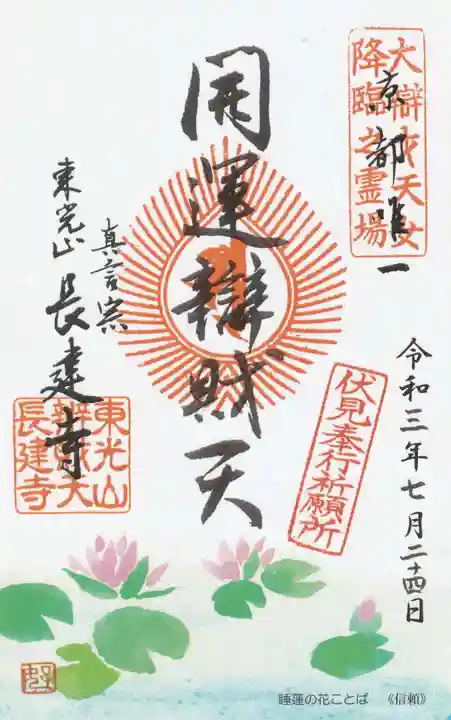 大辯才天女
降臨之霊場
京都唯一
開運辯財天
真言宗
東光山 長建寺
東光山
辨財天
長建寺
伏見奉行祈願所
令和三年七月二十四日
睡蓮の花ことば 《信頼》